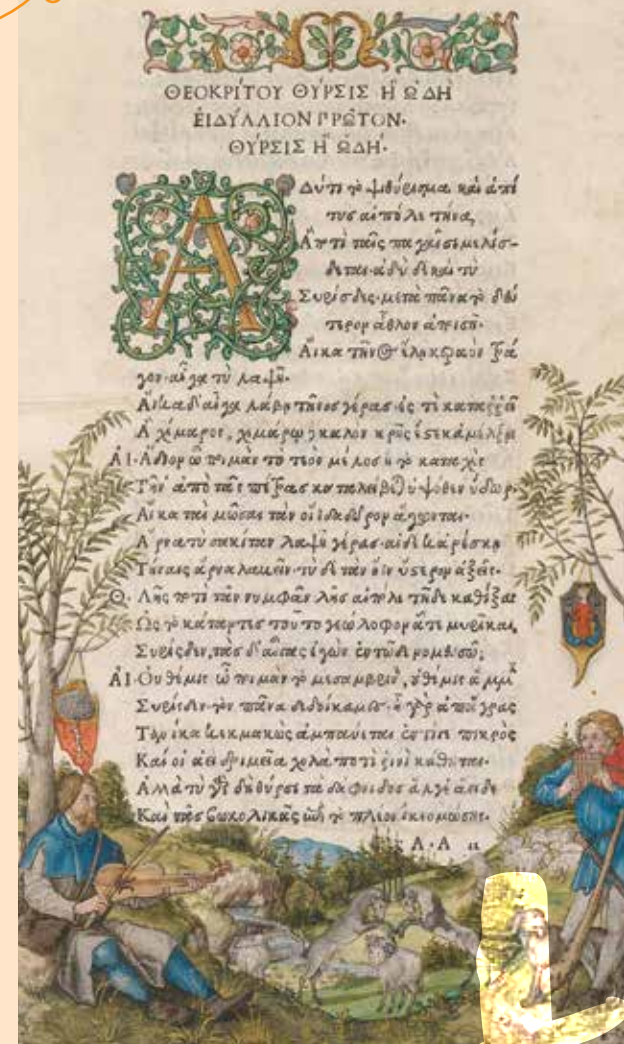 ΘΕΟΚΡΊΤΟΥ ΘΎΡΣΙΣ Ἢ ΩΔῊ
ἘΙΔΎΛΛΙΟΝ ΠΡΩ͂ΤΟΝ·
ΘΎΡΣΙΣ Ἢ ὨΔΉ·
ΑΔύ τι τὸ ψιθύρισμα καὶ ἁ πί
τυς αἰπόλε τήνα,
Ἃ ποτὶ ταῖς παγαῖσι μελίσ-
δεται· ἁδὺ δὲ καὶ τὺ
Συρίσδες· μετὰ πᾶνα τὸ δεύ
τερον ἆθλον ἀποισῇ·
Αἴκα τῆνος ἕλῃ κεραὸν τρά
γον· αἶγα τὺ λαψῇ·
Αἴκα δ' αἶγα λάβῃ τῆνος γέρας· ἐς τὲ καταῤῥεῖ
Ἁ χίμαρος, χιμάρω δὲ καλὸν κρῆς ἔστε κ' ἀμέλξῃς
ΑΙ· Ἅδιον ὦ ποιμὰν τὸ τεὸν μέλος ἢ τὸ καταχὲς
Τῆν' ἀπὸ τᾶς πέτρας καταλείβεται ὑψόθεν ὕδωρ·
Αἴ κα ταὶ μῶσαι τὰν οἰΐδα δῶρον ἄγωνται·
Ἄρνα τὺ σακίταν λαψῇ γέρας· αἰ δέ κ' ἀρέσκῃ
Τήναις ἄρνα λαβεῖν· τὺ δὲ τὰν ὄϊν ὕστερον ἀξεῖς·
Θ· Λῇς ποτὶ τᾶν νυμφᾶν λῇς αἰπόλε τῇδε καθίξας
Ὡς τὸ κάταντες τοῦτο γεώλοφον ἅτε μυρῖκαι,
Συρίσδεν, τὰς δ' αἶγας ἐγὼν ἐν τῷδε νομευσῶ;
ΑΙ· Οὐ θέμις ὦ ποιμὰν τὸ μεσαμβρινόν, οὐ θέμις ἄμμιν
Συρίσδεν τὸν πᾶνα δεδοίκαμες· ἦ γὰρ ἀπ' ἄγρας
Τανίκα κεκμακὼς ἀμπαύεται ἐστί πικρὸς
Καί οἱ ἀεὶ δριμεῖα χολὰ ποτὶ ῥινὶ κάθηται·
Ἀλλὰ τὺ γὰρ δὴ θύρσι τὰ δάφνιδος ἄλγε' ἄειδες
Καὶ τᾶς βωκολικᾶς ἐπὶ τὸ πλέον ἵκεο μώσας·
Α·Α ii